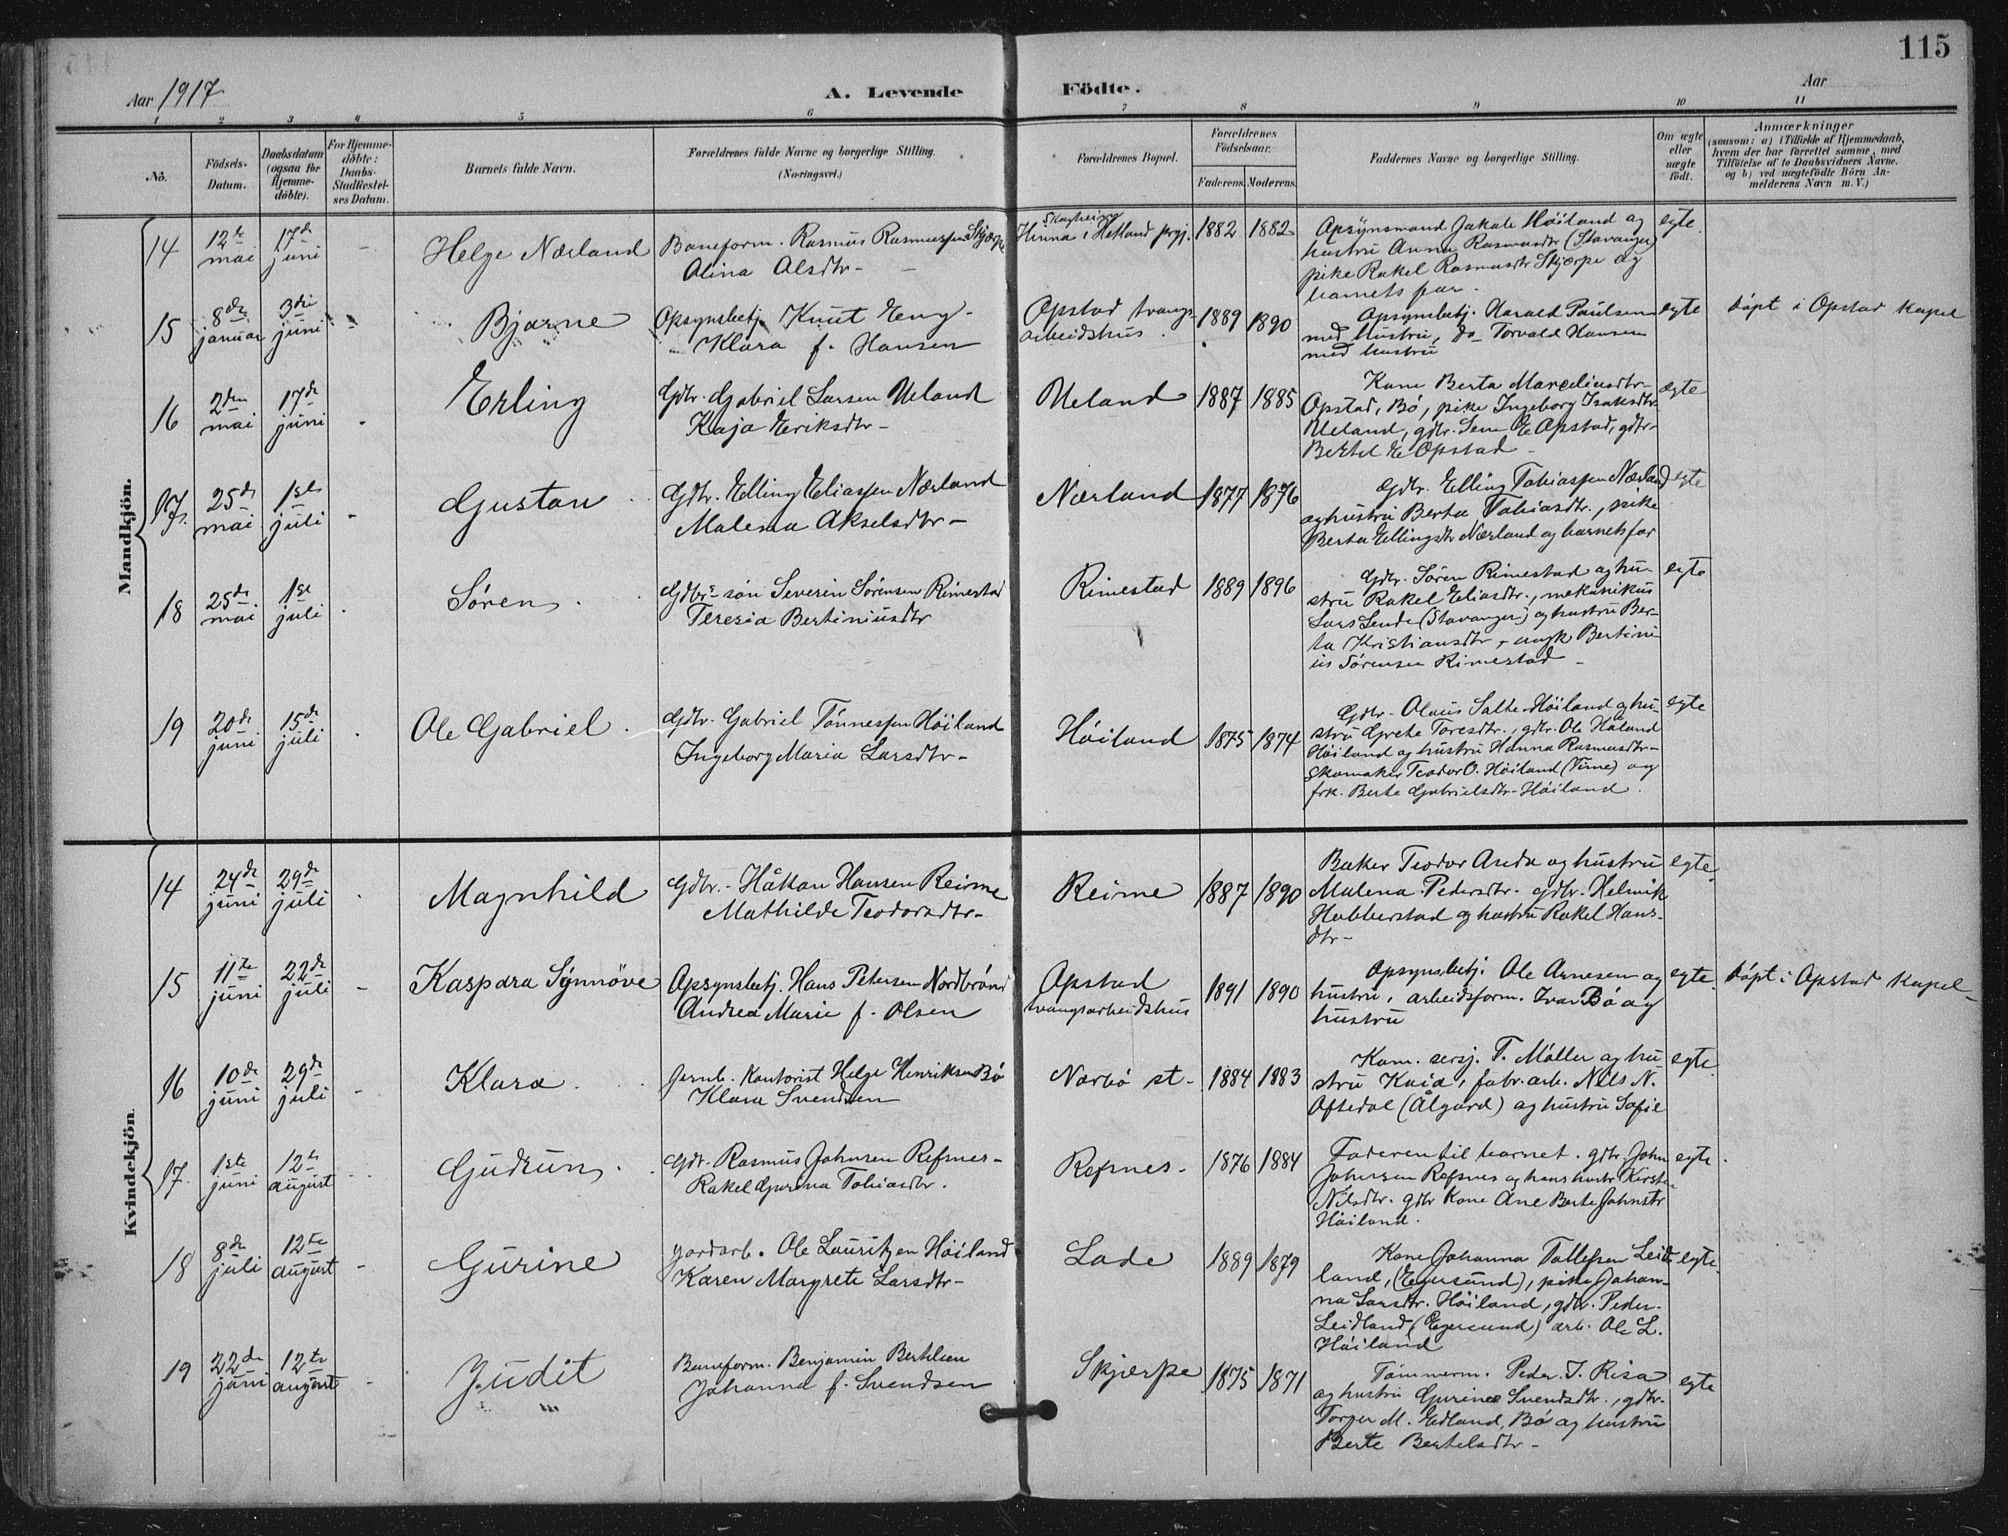 115
Aar 1917
A. Levende
Födte.
Aar
1 2 3 4 5 6 7 8 9 10 11
No.
Födsels-Datum.
Daabsdatum (ogsaa for Hjemmedöbte).
For Hjemmedöbte: Daabs-Stadfæstelses Datum.
Barnets fulde Navn.
Forældrenes fulde Navne og borgerlige Stilling.
(Næringsvei.)
Forældrenes Bopæl.
Forældrenes Födselsaar.
Faderens. Moderens.
Faddernes Navne og borgerlige Stilling.
Om ægte eller uægte födt.
Anmærkninger
(saasom: a) i Tilfælde af Hjemmedaab, hvem der har forrettet samme, med Tilföielse af to Daabsvidners Navne. og b) ved uægtefödte Börn Anmelderens Navn m. V.)
Mandkjön.
14 12te mai 17de juni - Helge Nærland
Baneform. Rasmus Rasmussen Skjærpe
Alina Olsdtr -
Skagheim
Hinna i Hetland prgj. 1882 1882
Opsynsmand Jakob Höiland og
hustru Anna Rasmusdtr (Stavanger)
pike Rakel Rasmusdtr Skjærpe og
barnets far -
egte.
15 8de januar 3die juni - Bjarne
Opsynsbetj. Knut Eng -
" Klara f. Hansen
Opstad tvangs-
arbeidshus. 1889 1890
Opsynsbetj. Harald Paulsen
med hustru, do Torvald Hansen
med hustru
egte
döpt i Opstad kapel
16 2den mai 17de juni - Erling
Gdbr. Gabriel Larsen Ueland
Kaja Eriksdtr -
Ueland 1887 1885
Kone Berta Marceliusdtr -
Opstad, Bö, pike Ingeborg Isaksdtr
Ueland, gdbr. Sem E Opstad, gdbr.
Bertel E Opstad -
ægte
17. 25de mai 1ste juli - Gustav
Gdbr. Elling Eliassen Nærland
Malena Akselsdtr -
Nærland 1877 1876
Gdbr. Elling Tobiassen Nærland
og hustru Berta Tobiasdtr., pike
Berta Ellingsdtr Nærland og barnets far
egte
18 25de mai 1ste juli - Sören
Gdbrs sön Severin Sörensen Rimestad
Teresia Bertiniusdtr
Rimestad 1889 1896
Gdbr. Sören Rimestad og hu-
stru Rakel Eliasdtr., mekanikus
Lars Lende (Stavanger) og hustru Ber-
ta Kristiansdtr, ungk Bertini-
us Sörensen Rimestad -
egte
19 20de juni 15de juli - Ole Gabriel
Gdbr. Gabriel Tönnessen Höiland
Ingeborg Maria Larsdtr -
Höiland 1875 1874
Gdbr. Olaus Salte Höiland og hu-
stru Grete Toresdtr., gdbr. Ole Håland
Höiland og hustru Hanna Rasmusdtr -
Skomaker Teodor O. Höiland (Time) og
frk. Berte Gabrielsdtr. Höiland.
egte
Kvindekjön.
14 24de juni 29de juli - Magnhild
Gdbr. Håkon Hansen Reime
Mathilde Teodorsdtr -
Reime 1887 1890
Baker Teodor Anda og hustru
Malena Pedersdtr. gdbr. Helmik
Hobberstad og hustru Rakel Hans-
dtr -
egte.
15 11te juni 22de juli - Kaspara Synnöve
Opsynsbetj. Hans Petersen Nordbrönd
Andrea Marie f. Olsen
Opstad
tvangsarbeidshus 1891 1890
Opsynsbetj. Ole Arnesen og
hustru, arbeidsform. Ivar Bö og
hustru
egte.
döpt i Opstad kapel -
16 10de juni 29de juli - Klara
Jernb. Kontorist Helge Henriksen Bö
Klara Svendsen
Nærbö st - 1884 1883
Kom. sersj. T. Möller og hu-
stru Kaia, fabr. arb. Nils N.
Oftedal (Ålgård) og hustru Sofie
egte.
17. 1ste juni 12te august - Gudrun
Gdbr. Rasmus Johnsen Refsnes -
Rakel Gurina Tobiasdtr.
Refsnes - 1876 1884
Faderen til barnet. gdbr. John
Johnsen Refsnes og hans hustr Kirste
Nilsdtr. gdbr Kone Ane Berte Johnsdtr
Höiland.
egte.
18 8de juli 12te august - Gurine
Jordarb. Ole Lauritzen Höiland
Karen Margrete Larsdtr -
Lade 1889 1879
Kone Johanna Tollefsen Leid-
land, (Egersund), pike Johan-
na Larsdtr. Höiland, gdbr. Peder
Leidland (Egersund) arb. Ole L.
Höiland
egte.
19 22de juni 12te august - Judit
Baneform. Benjamin Bertelsen
Johanna f. Svendsen
Skjærpe 1875 1871
Tömmerm. Peder J. Risa
og hustru Gurine Svendsdtr., gdbr.
Torger M. Edland, Bö og hustru
Berte Bertelsdtr -
egte